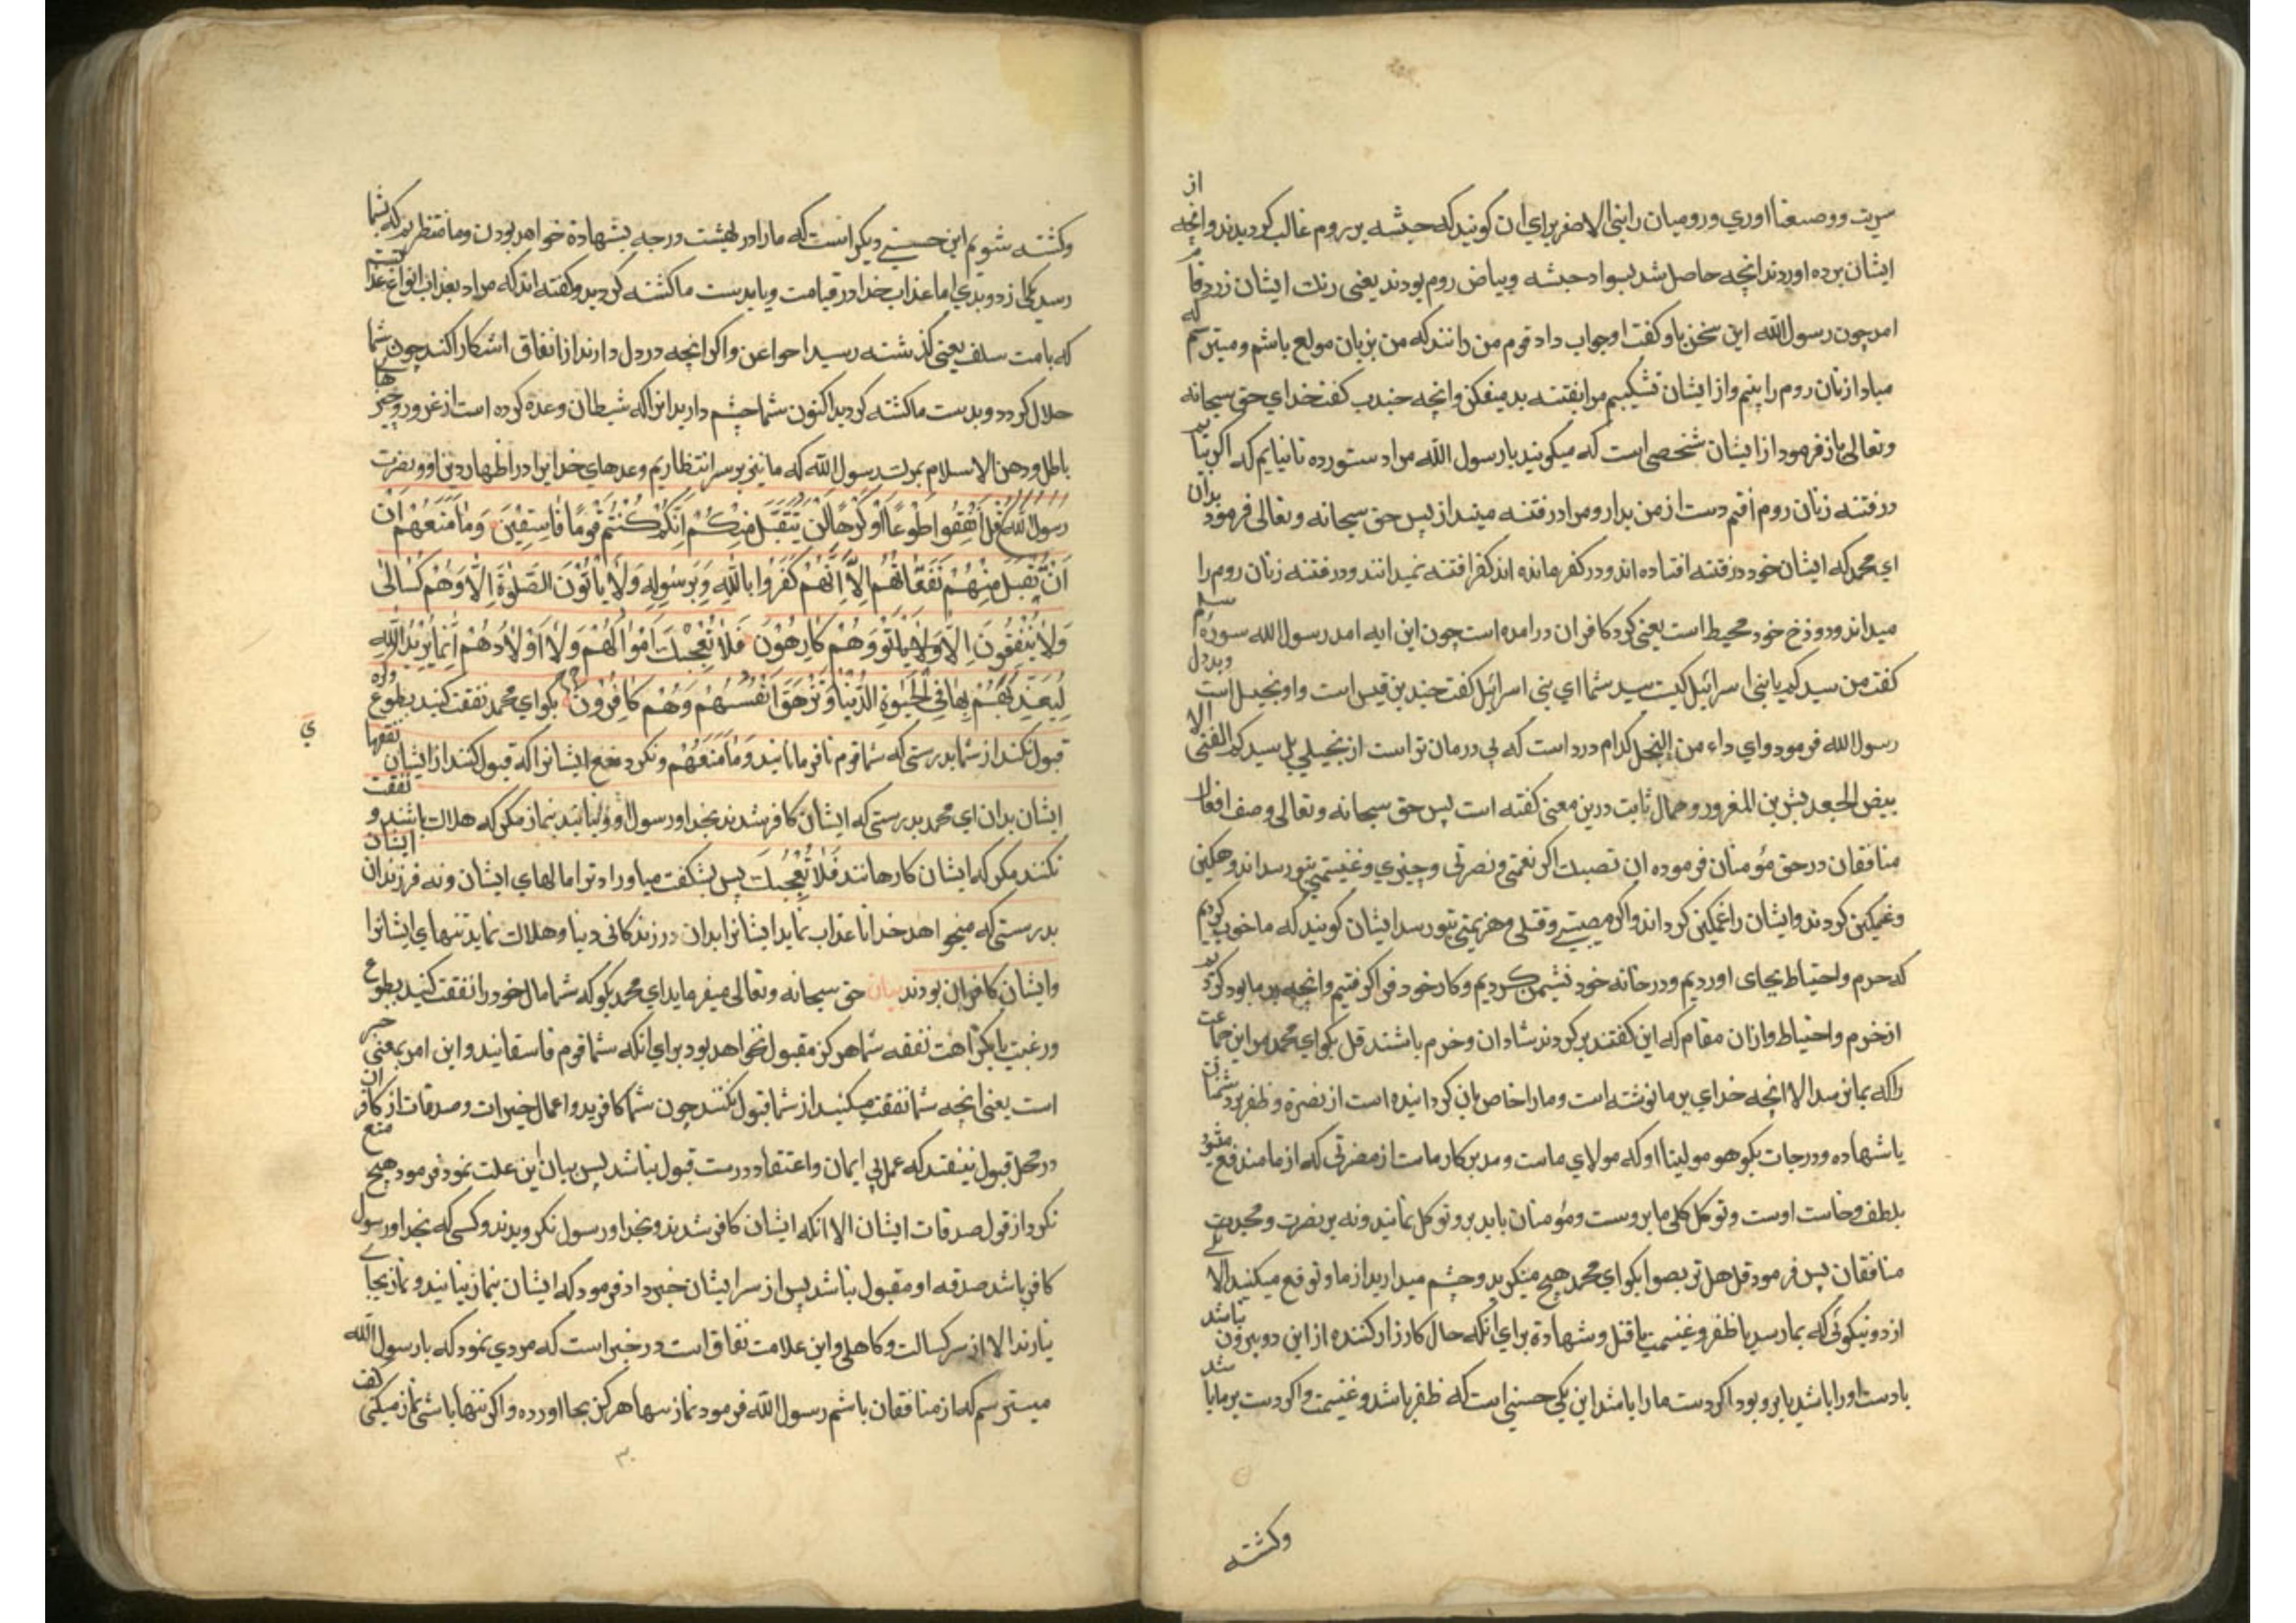 سریت ووصعنا اوری ورومیان را بنی الاصفر برای ان کویند که حبشه بر روم غالب کردیدند وانچه از
ایشان برده اوردند انچه حاصل شد بسواد حبشه وبیاض روم بودند یعنی رنک ایشان زرد فام
امد چون رسول الله این سخن باو کفت او جواب داد قوم من دانند که من بزنان مولع باشم ومیترسم که
مبادا زنان روم را بینم واز ایشان نشکیبم مرا بفتنه بد میفکن وانچه جندب کفت خدای حق سبحانه
وتعالی باز فرمود از ایشان شخصی است که میکویند یا رسول الله مرا دستور ده تا نیایم که اکر بیاید
در فتنه زنان روم افتم دست از من بدار ومرا در فتنه میندار پس حق سبحانه وتعالی فرمود بدان
ای محمد که ایشان خود در فتنه افتاده اند ودر کفر مانده اند کفر افتنه نمیدانند ودر فتنه زنان روم را
میداند ودوزخ خود محیط است یعنی کرد کافران در امده است چون این ایه امد رسول الله سوره
کفت من سیدکم یا بنی اسرائیل کیت سید شما ای بنی اسرائیل کفت جند بن قیس است واو بخیل است وبددل
رسول الله فرمود وای داء من البخل کدام درد است که بی درمان تر است از بخیلی بل سیدکم الفتی الا
بیض الجعد بشر بن المغرور وحمال ثابت درین معنی کفته است پس حق سبحانه وتعالی وصف افعال
منافقان در حق مؤمنان فرموده ان تصبک اکر نعمتی ونصرتی وچیزی وغنیمتی بتو رسد اندوهکین
وغمکین کردند وایشان را غمکین کرداند واکر مصیبتی وقتلی وهزیمتی بتو رسد ایشان کویند که ما خوب کردیم
که حرم واحتیاط بجای اوردیم ودر خانه خود نشیمن کردیم وکار خود فرا کرفتیم وانچه بر ما بود کردید
از خرم واحتیاط واز ان مقام که این کفتند بر کردند شادان وخرم باشند قل بکو ای محمد مر این جماعت
را که بما نرسد الا انچه خدای بر ما نوشته است وما را خاص بان کردانیده است از نصرة وظفر بر دشمنان
یا شهاده ودرجات بکو هو مولینا او که مولای ماست ومدبر کار ماست از مضرتی که از ما مندفع میشود
بلطف وخاست اوست وتوکل کلی ما بروست ومؤمنان باید بر و توکل نمایند ونه بر نصرت ومجدیت
منافقان پس فرمود قل هل تربصوا بکو ای محمد هیچ منکرید وچشم میدارید از ما وتوقع میکنید الا یکی
از دو نیکوئی که بما رسد یا ظفر وغنیمت یا قتل وشهادة برای انکه حال کارزار کننده از این دو بیرون نباشد
یا دست او را باشد یا بر و بود اکر دست ما را باشد این یکی حسنی است که ظفر باشد وغنیمت واکر دست بر ما باشد
وکشته
وکشته شویم این حسنی دیکر است که ما را در بهشت درجه بشهادة خواهد بودن وما منتظریم که بشما
رسد یکی از دو بدی اما عذاب خدا در قیامت ویا بدست ما کشته کردید وکفته اند که مراد بعذاب انواع عذابست
که بامت سلف یعنی کذشته رسید احوا عن واکر انچه در دل دارند از نفاق اشکارا کنند چون شما
حلال کردد وبدست ما کشته کردید اکنون شما چشم دارید انرا که شیطان وعده کرده است از غرور وچیزها
باطل ودهن الاسلام بمرک رسول الله که ما نیز بر سر انتظاریم وعدهای خدایرا در اظهار دین او ونصرت
رسول الله قُلْ اَنْفِقُوا طَوْعًا اَوْ كَرْهًا لَنْ يُتَقَبَّلَ مِنْكُمْ اِنَّكُمْ كُنْتُمْ قَوْمًا فَاسِقِينَ وَمَا مَنَعَهُمْ اَنْ
اَنْ تُقْبَلَ مِنْهُمْ نَفَقَاتُهُمْ اِلَّا اَنَّهُمْ كَفَرُوا بِاللّٰهِ وَبِرَسُولِهِ وَلَا يَاْتُونَ الصَّلٰوةَ اِلَّا وَهُمْ كُسَالٰى
وَلَا يُنْفِقُونَ اِلَّا وَهُمْ كَارِهُونَ فَلَا تُعْجِبْكَ اَمْوَالُهُمْ وَلَا اَوْلَادُهُمْ اِنَّمَا يُرِيدُ اللّٰهُ
لِيُعَذِّبَهُمْ بِهَا فِي الْحَيٰوةِ الدُّنْيَا وَتَزْهَقَ اَنْفُسُهُمْ وَهُمْ كَافِرُونَ بکو ای محمد نفقت کنید بطوع
قبول نکند از شما بدرستی که شما قوم نافرمانید وَمَا مَنَعَهُمْ ونکرد منع ایشانرا که قبول کنند از ایشان نفقهای
ایشان بدان ای محمد بدرستی که ایشان کافر شدند بخدا ورسول او ونیایند بنماز مکر که هلاک باشند و نفقت
نکنند مکر که ایشان کارهانند فَلَا تُعْجِبْكَ پس بشکفت میاوراد ترا مالهای ایشان ونه فرزندان ایشان
بدرستی که میخواهد خدا تا عذاب نماید ایشانرا بدان در زندکانی دنیا وهلاک نماید تنهای ایشانرا
وایشان کافران بودند بیان حق سبحانه وتعالی میفرماید ای محمد بکو که شما مال خود را نفقت کنید بطوع
ورغبت یا بکراهت نفقه شما هرکز مقبول نخواهد بود برای انکه شما قوم فاسقانید واین امر بمعنی خبر
است یعنی انچه شما نفقت میکنید از شما قبول نکنند چون شما کافرید واعمال خیرات وصدقات از کافر ان
در محل قبول نیفتد که عمل بی ایمان واعتقاد درست قبول نباشد پس بیان این علت نمود فرمود هیچ منع
نکرد از قول صدقات ایشان الا انکه ایشان کافر شدند وبخدا ورسول نکرویدند وکسی که بخدا ورسول
کافر باشد صدقه او مقبول نباشد پس از سر ایشان خبر داد فرمود که ایشان بنماز نیایند ونماز بجای
نیارند الا از سر کسالت وکاهلی واین علامت نفاق است در خبر است که مردی نمود که یا رسول الله
میترسم که از منافقان باشم رسول الله فرمود نماز سها هرکز بجا اورده واکر تنها باشی نماز میکنی کفت